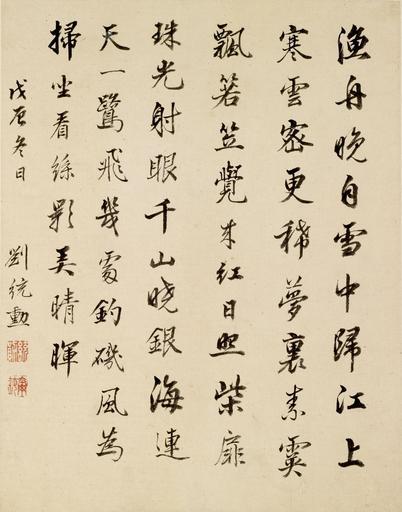 漁舟晚自雪中歸江上
寒雲密更稀夢裏素霙
飄箬笠覺來紅日照柴扉
珠光射眼千山曉銀海連
天一鷺飛幾處釣磯風為
掃坐看絲影晴暉
戊辰冬日
劉統勳